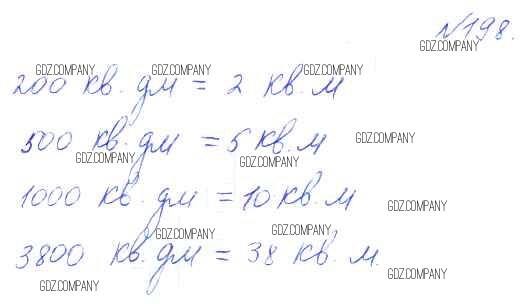 №198.
GDZ.COMPANY
GDZ.COMPANY GDZ.COMPANY GDZ.COMPANY
200 кв. дм = 2 кв. м
500 кв. дм = 5 кв. м GDZ.COMPANY
GDZ.COMPANY GDZ.COMPANY
1000 кв. дм = 10 кв. м GDZ.COMPANY
GDZ.COMPANY GDZ.COMPANY
3800 кв. дм = 38 кв. м.
GDZ.COMPANY
GDZ.COMPANY